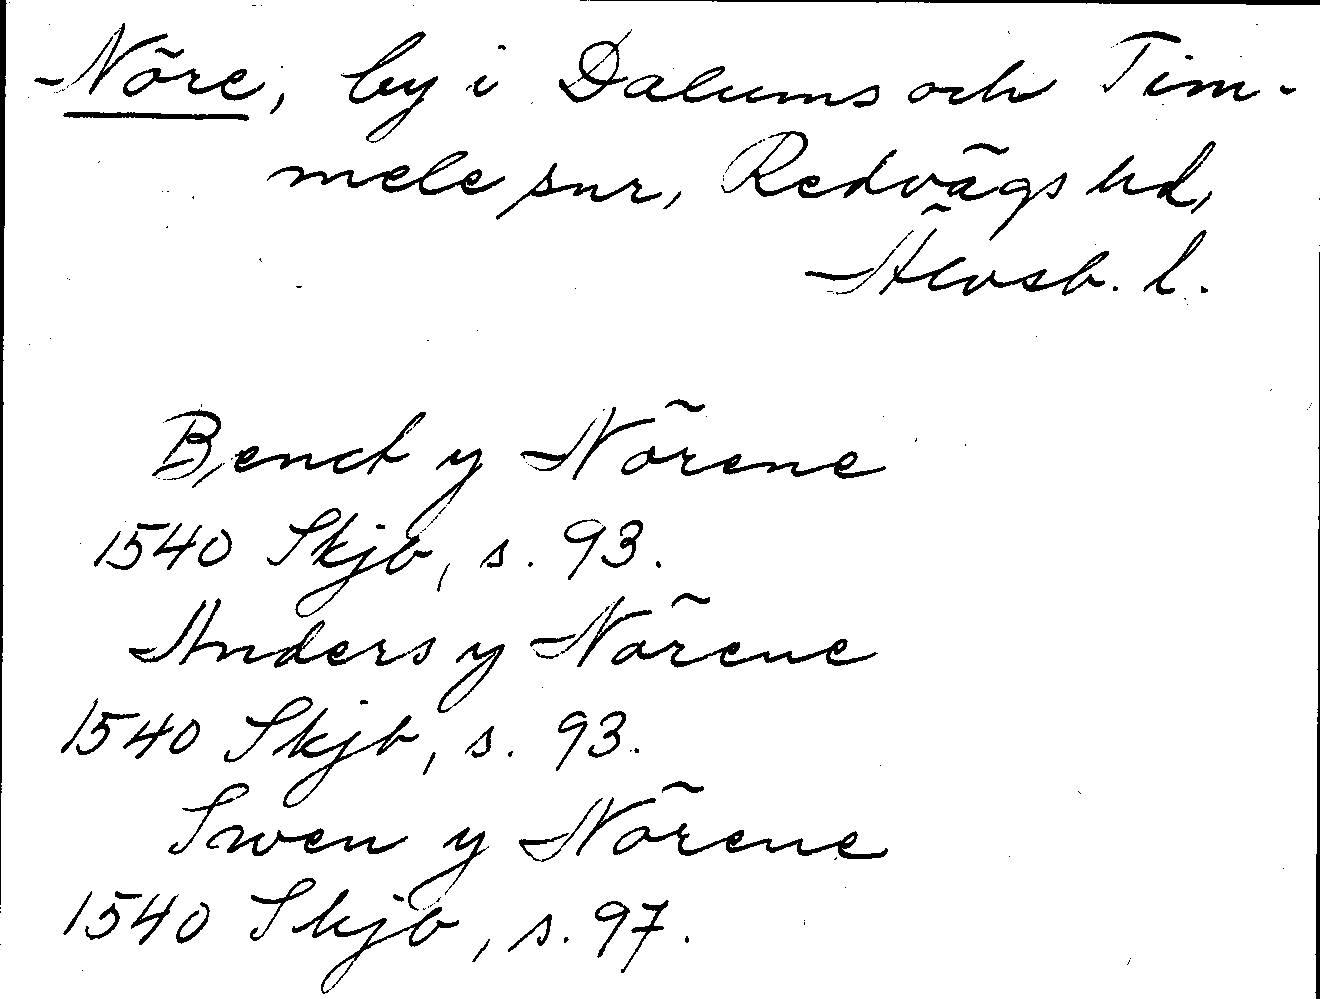 Nöre, by i Dalums och Tim-
mele snr, Redvägs hd,
Älvsb. l.
Benct y Nörene
1540 Skjb, s. 93.
Anders y Nörene
1540 Skjb, s. 93.
Swen y Nörene
1540 Skjb, s. 97.